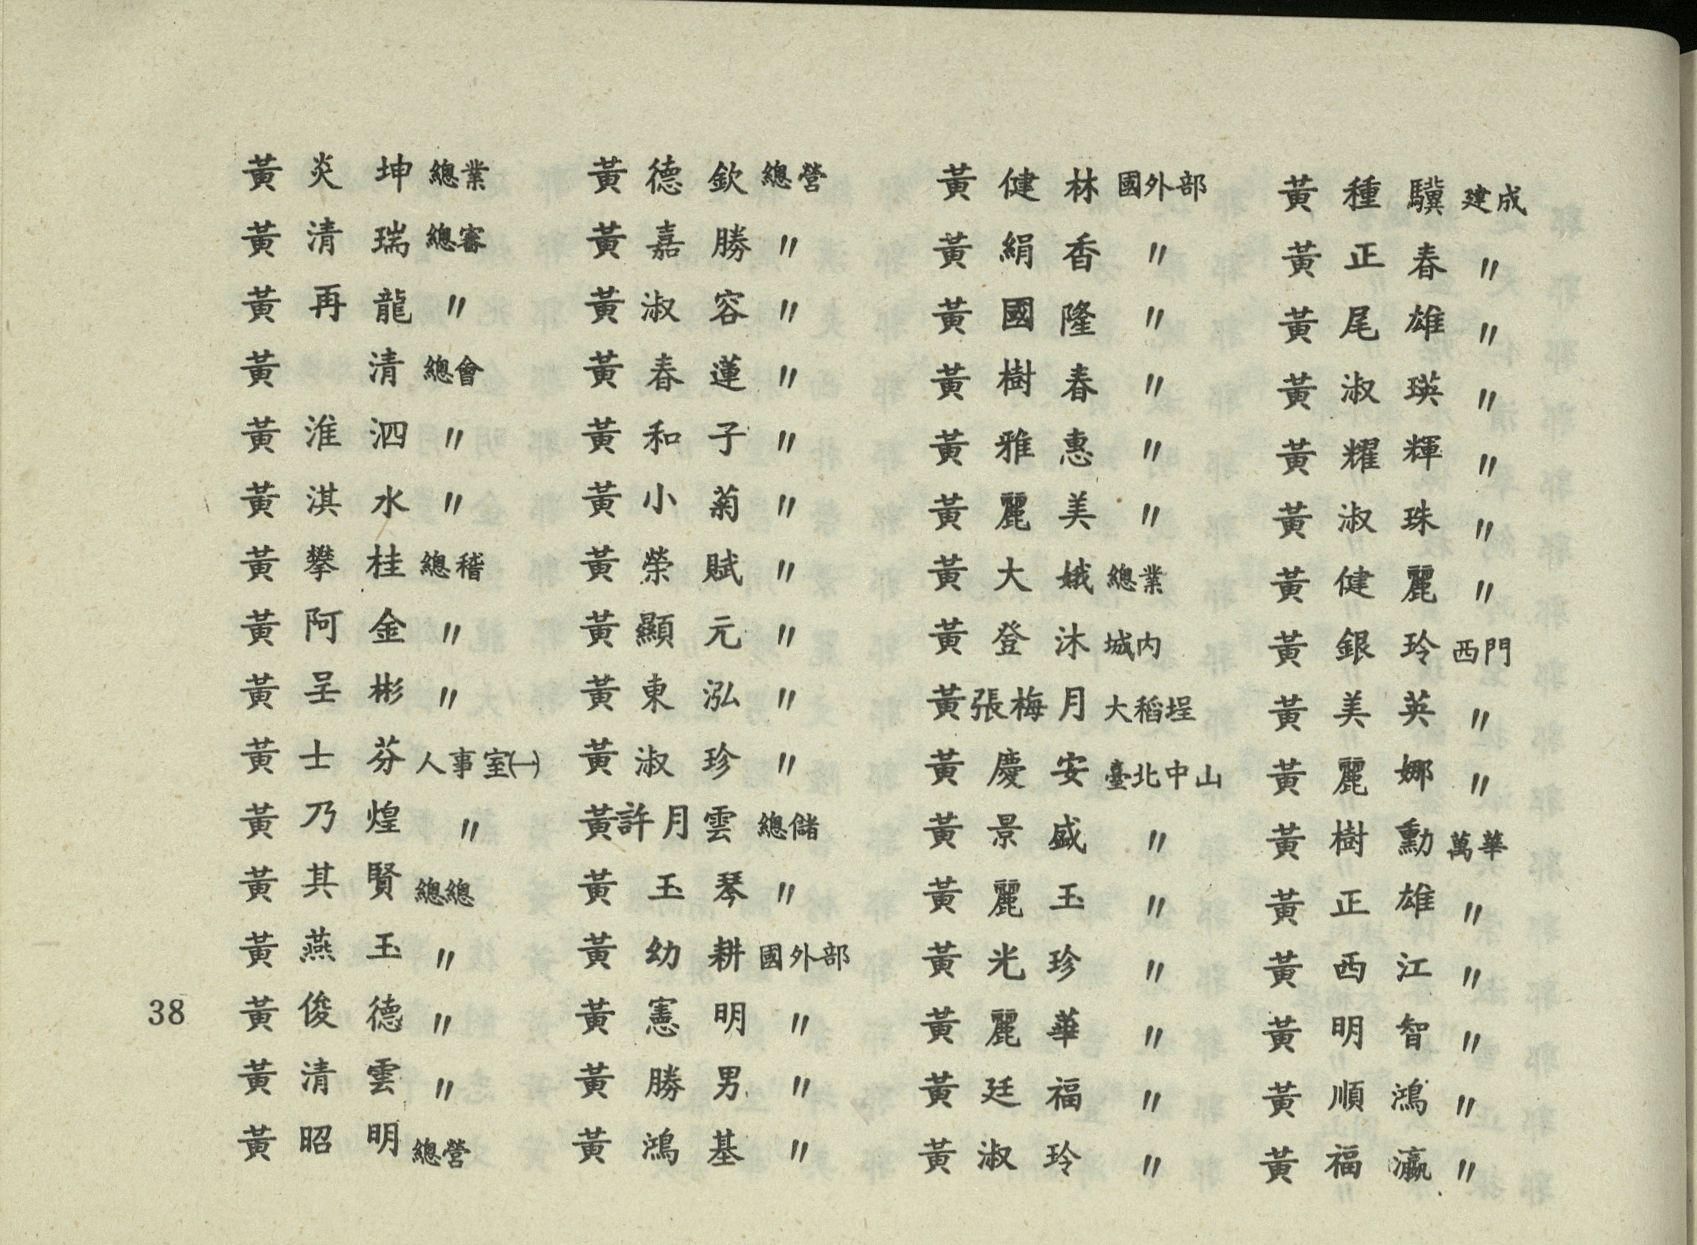 黃炎坤 總業
黃清瑞 總審
黃再龍 〃
黃清 總會
黃淮泗 〃
黃淇水 〃
黃攀桂 總稽
黃阿金 〃
黃呈彬 〃
黃士芬 人事室㈠
黃乃煌 〃
黃其賢 總總
黃燕玉 〃
黃俊德 〃
黃清雲 〃
黃昭明 總營
黃德欽 總營
黃嘉勝 〃
黃淑容 〃
黃春蓮 〃
黃和子 〃
黃小菊 〃
黃榮賦 〃
黃顯元 〃
黃東泓 〃
黃淑珍 〃
黃許月雲 總儲
黃玉琴 〃
黃幼耕 國外部
黃憲明 〃
黃勝男 〃
黃鴻基 〃
黃健林 國外部
黃絹香 〃
黃國隆 〃
黃樹春 〃
黃雅惠 〃
黃麗美 〃
黃大娥 總業
黃登沐 城內
黃張梅月 大稻埕
黃慶安 臺北中山
黃景盛 〃
黃麗玉 〃
黃光珍 〃
黃麗華 〃
黃廷福 〃
黃淑玲 〃
黃種驥 建成
黃正春 〃
黃尾雄 〃
黃淑瑛 〃
黃耀輝 〃
黃淑珠 〃
黃健麗 〃
黃銀玲 西門
黃美英 〃
黃麗娜 〃
黃樹勳 萬華
黃正雄 〃
黃西江 〃
黃明智 〃
黃順鴻 〃
黃福瀛 〃
38